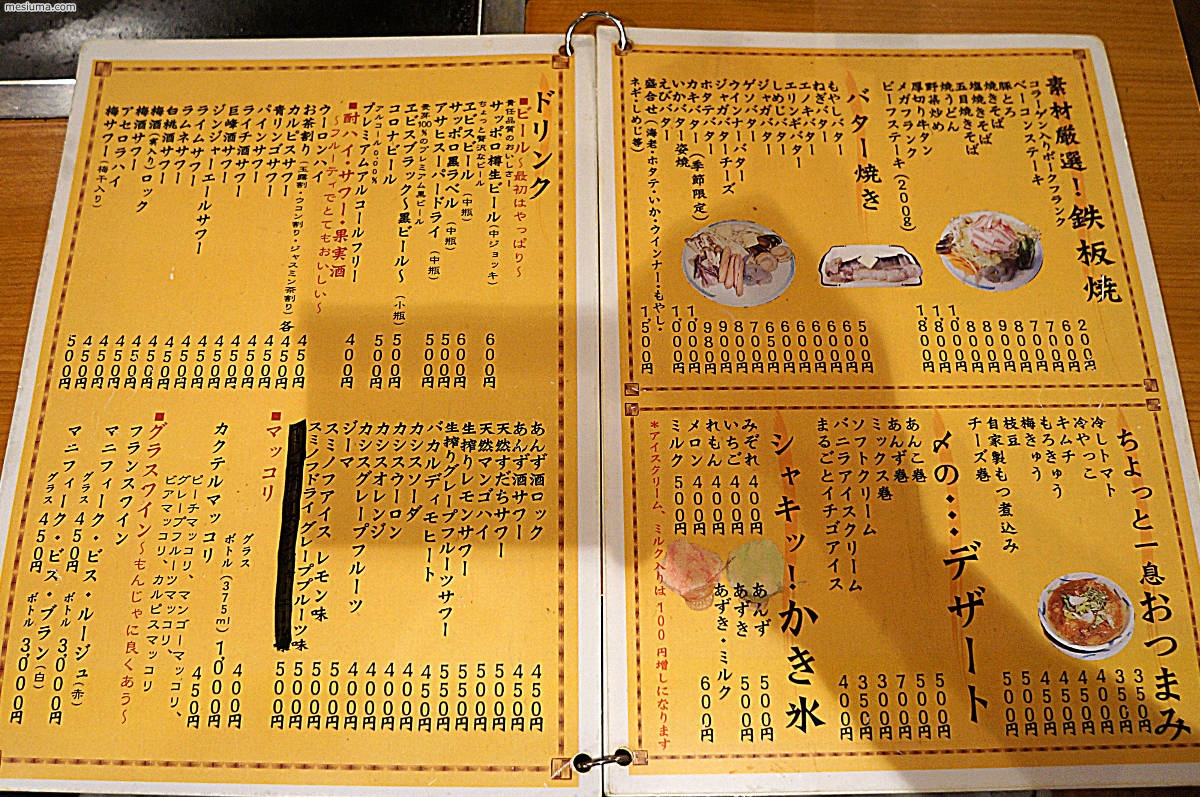 mesiuma.com
素材厳選！鉄板焼
コラーゲン入りポークフランク
ベーコンステーキ
豚とろ
焼きそば
塩焼きそば
五目焼きそば
焼うどん
野菜炒め
厚切り牛タン
メガフランク
ビーフステーキ（200g）
バター焼き
もやしバター 500円
ねぎバター
エノキバター
エリンギバター
しめじバター
ジャガバター
ゲソバター
ウインナーバター
ジャガバターチーズ
カキバター（季節限定）
ホタテバター
いかバター
いか姿焼
えびバター
盛合せ（海老・ホタテ・いか・ウインナー・もやし・ネギ・しめじ等） 1,500円
ちょっと一息おつまみ
冷しトマト 350円
冷やっこ 350円
キムチ 400円
もろきゅう 450円
梅きゅう 450円
枝豆 450円
自家製もつ煮込み 500円
チーズ巻 500円
〆の…デザート
あんこ巻 500円
あんず巻 500円
ミックス巻 700円
ソフトクリーム 300円
バニラアイスクリーム 350円
まるごとイチゴアイス 400円
シャキッ！かき氷
みぞれ 400円
いちご 400円
れもん 400円
メロン 400円
ミルク 500円
あんず 500円
あずき 500円
あずき・ミルク 600円
*アイスクリーム、ミルク入りは100円増しになります
ドリンク
■ビール〜最初はやっぱり〜
責任品質のおいしさ
サッポロ樽生ビール（中ジョッキ） 600円
ちょっと贅沢なビール
ヱビスビール（中瓶） 600円
サッポロ黒ラベル（中瓶） 500円
アサヒスーパードライ（中瓶） 500円
麦芽100％のプレミアム黒ビール
ヱビスブラック〜黒ビール〜（小瓶） 500円
コロナビール 500円
アルコール0.00％
プレミアムアルコールフリー 400円
■酎ハイ・サワー・果実酒
〜フルーティでとてもおいしい〜
ウーロンハイ 450円
お茶割り（玉露割・ウコン割り・ジャスミン茶割り）各 450円
カルピスサワー 450円
青リンゴサワー 450円
パインサワー 450円
ライチ酒サワー 450円
巨峰酒サワー 450円
ジンジャーエールサワー 450円
ライムサワー 450円
ラムネサワー 450円
白桃酒サワー 450円
梅酒サワー 450円
梅酒（実入り）ロック 450円
アセロラハイ 450円
梅サワー（梅干入り） 500円
あんず酒ロック 450円
あんず酒サワー 450円
天然すだちサワー
天然マンゴハイ
生搾りレモンサワー
生搾りグレープフルーツサワー
バカルディモヒート
カシスソーダ
カシスウーロン
カシスオレンジ
カシスグレープフルーツ
ジーマ 500円
スミノフアイス レモン味 500円
スミノフドライグレープフルーツ味 500円
■マッコリ
グラス 400円
ボトル（375ml） 1,000円
カクテルマッコリ 450円
ピーチマッコリ、マンゴーマッコリ、
グレープフルーツマッコリ、
ピアマッコリ、カルピスマッコリ
■グラスワイン〜もんじゃに良くあう〜
フランスワイン
マニフィーク・ビス・ルージュ（赤）
グラス 450円 ボトル 3,000円
マニフィーク・ビス・ブラン（白）
グラス 450円 ボトル 3,000円